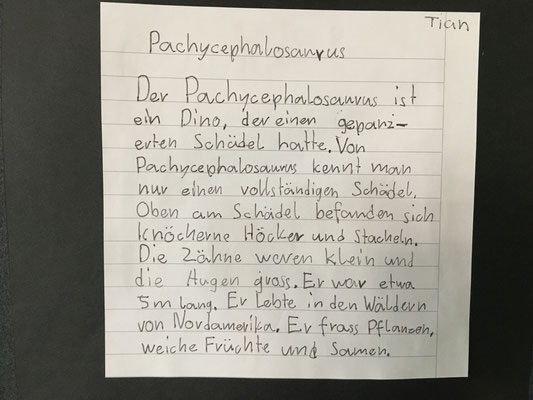 Tian
Pachycephalosaurus
Der Pachycephalosaurus ist
ein Dino, der einen gepanz-
erten Schädel hatte. Von
Pachycephalosaurus kennt man
nur einen vollständigen Schädel.
Oben am Schädel befanden sich
knöcherne Höcker und Stacheln.
Die Zähne waren klein und
die Augen gross. Er war etwa
5m lang. Er lebte in den Wäldern
von Nordamerika. Er frass Pflanzen,
weiche Früchte und Samen.